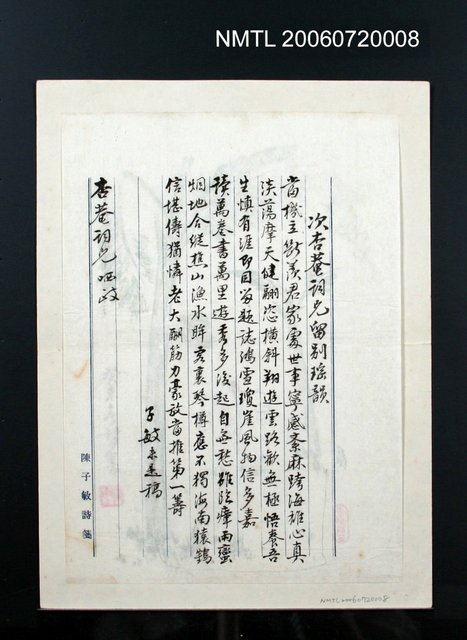 NMTL 20060720008
次杏菴詞兄留別瑤韻
當機立斷羨君家處世事寧感紊麻跨海雄心真
淡蕩摩天健翮恣橫斜翔遊雲路歡無極悟養吾
生慎有涯即目留題誌鴻雪瓊崖風物信多嘉
讀萬卷書萬里遊秀多後起自無愁雖臨瘴雨蠻
烟地合縱樵山漁水眸客裏琴樽應不獨海南猿鶴
信堪儔猶憐老大酬筋力豪放當推第一籌
子敏未定稿
杏菴詞兄哂政
陳子敏詩箋
NMTL 20060720008